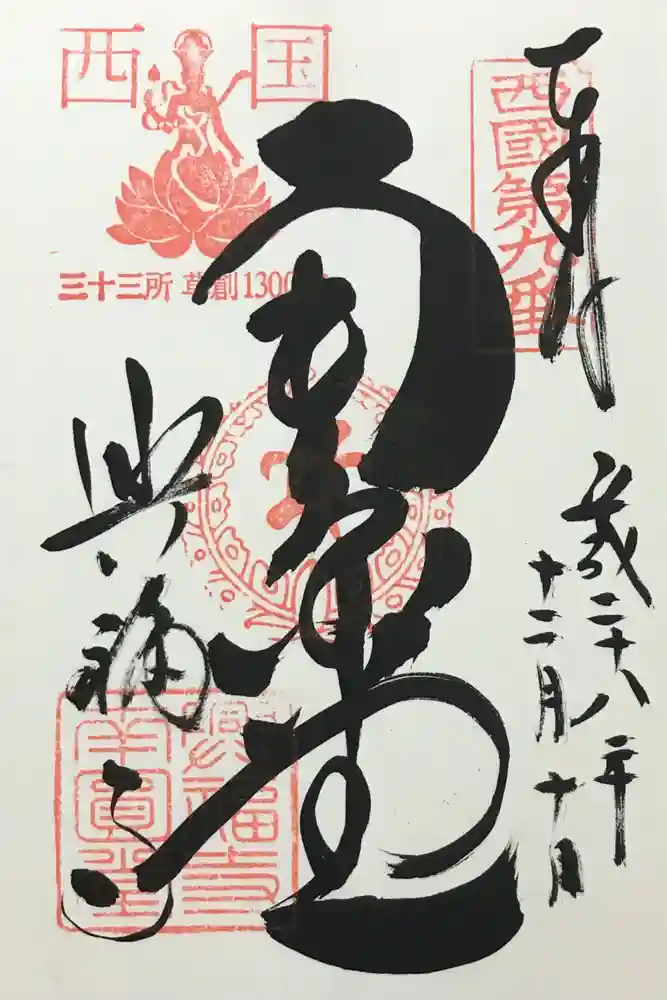 奉拝
西國第九番
平成二十八年
十二月十日
西国
三十三所 草創1300年
南円堂
興福寺
興福寺
南圓堂